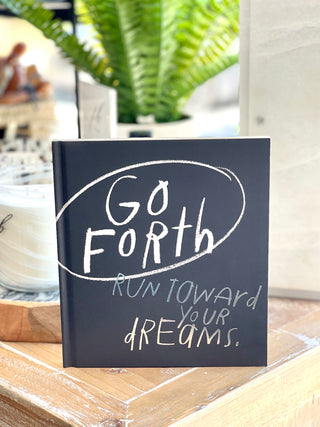 GO
FORth
RUN TOWARd
YOUR
dREAMS.